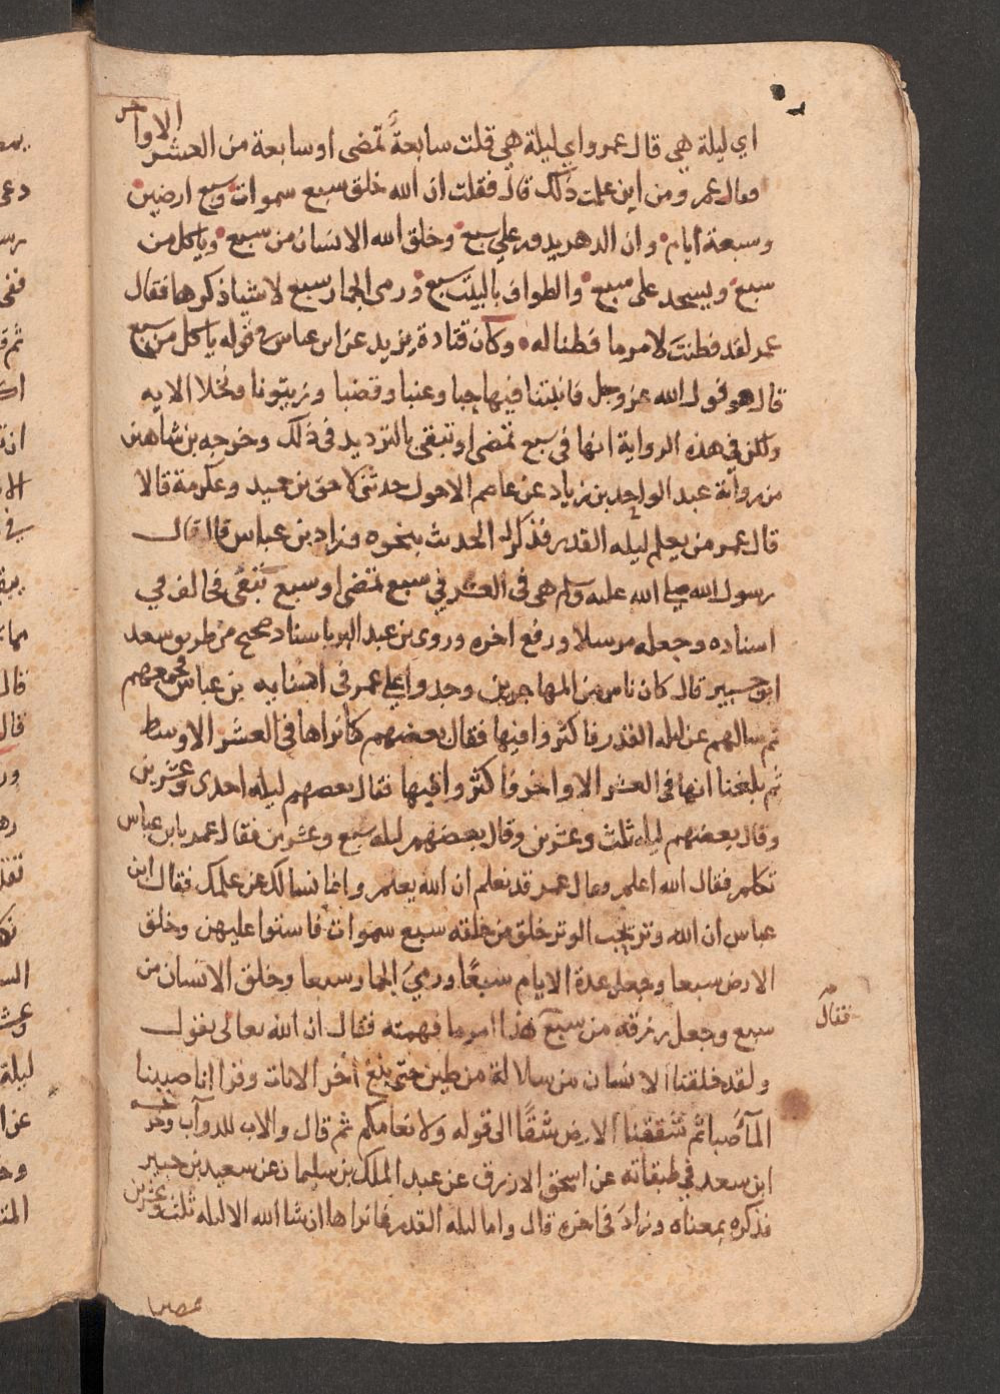 اي ليلة هي قال عمر واي ليلة هي قلت سابعة تمضى او سابعة من العشر الاواخر
فقال عمر ومن اين علمت ذلك قال فقلت ان الله خلق سبع سموات وسبع ارضين
وسبعة ايام وان الدهر يدور على سبع وخلق الله الانسان من سبع وياكل من
سبع ويسجد على سبع والطواف بالبيت سبع ورمى الجمار سبع لاشيا ذكرها فقال
عمر لقد فطنت لامر ما فطنا له وكان قتادة يزيد عن ابن عباس في قوله ياكل من سبع
قال هو قول الله عز وجل فانبتنا فيها حبا وعنبا وقضبا وزيتونا ونخلا الايه
ولكن في هذه الرواية انها في سبع تمضى او تبقى بالترديد في ذلك وخرجه بن شاهين
من رواية عبد الواحد بن زياد عن عاصم الاحول حدثنى لاحق بن حميد وعكرمة قالا
قال عمر من يعلم ليله القدر فذكر الحديث بنحوه وزاد بن عباس قال قال
رسول الله صلى الله عليه وسلم هى في العشر في سبع تمضى او سبع تبقى فخالف في
اسناده وجعله مرسلا ورفع اخره وروى بن عبد البر باسناد صحيح من طريق سعيد
ابن جبير قال كان ناس من المهاجرين وجدوا على عمر في ادنايه بن عباس فجمعهم
ثم سالهم عن ليله القدر فاكثروا فيها فقال بعضهم كنا نراها في العشر الاوسط
ثم بلغنا انها في العشر الاواخر فاكثروا فيها فقال بعضهم ليله احدى وعشرين
وقال بعضهم ليله ثلث وعشرين وقال بعضهم ليله سبع وعشرين فقال عمر يا بن عباس
تكلم فقال الله اعلم وقال عمر قد نعلم ان الله يعلم وانما نسالك عن علمك فقال ابن
عباس ان الله وتر يحب الوتر خلق من خلقه سبع سموات فاستوا عليهن وخلق
الارض سبعا وجعل عدة الايام سبعا ورمي الجمار سبعا وخلق الانسان من
سبع وجعل رزقه من سبع هذا امر ما فهمته فقال ان الله تعالى يقول
فقال
ولقد خلقنا الانسان من سلالة من طين حتى بلغ آخر الايات وقرا انا صببنا
المآ صبا ثم شققنا الارض شقا الى قوله ولانعامكم ثم قال والاب للدوآب وخرجه
ابن سعد في طبقاته عن اسحق الازرق عن عبد الملك بن سليمان عن سعيد بن جبير
فذكره بمعناه وزاد في اخره قال واما ليله القدر فما نراها ان شا الله الا ليله ثلث وعشرين